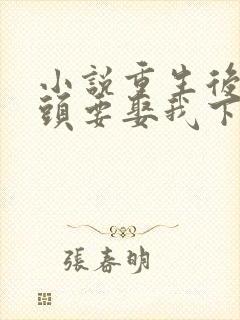 小說重生後
頭要娶我下
張春明